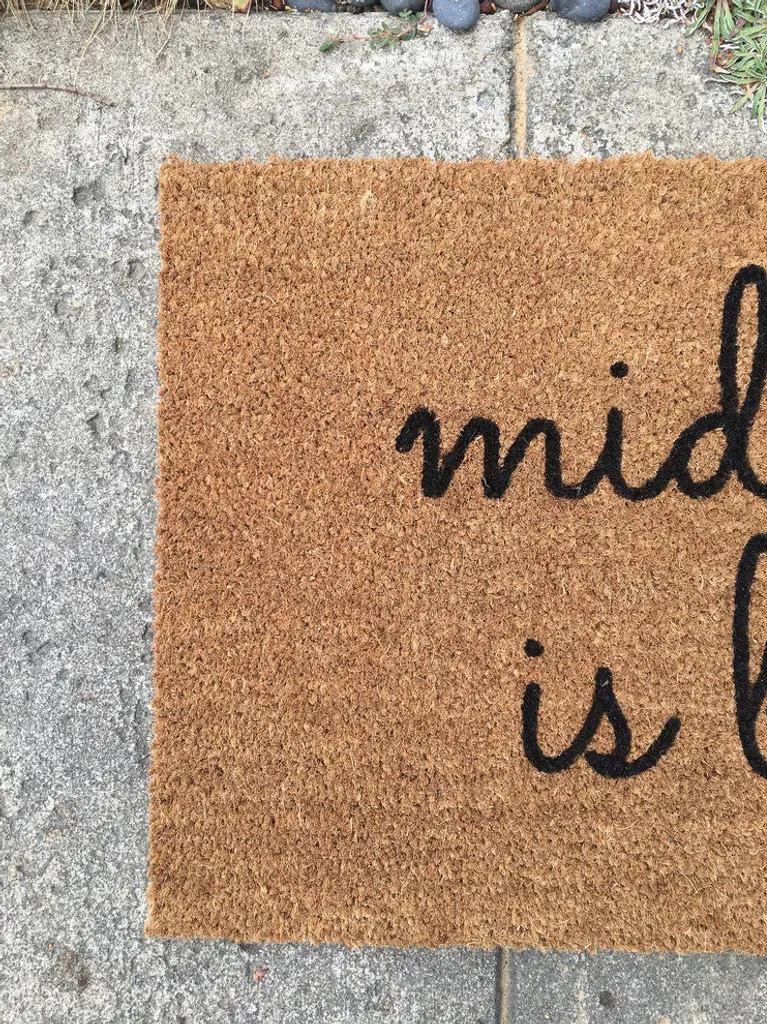 mid
is